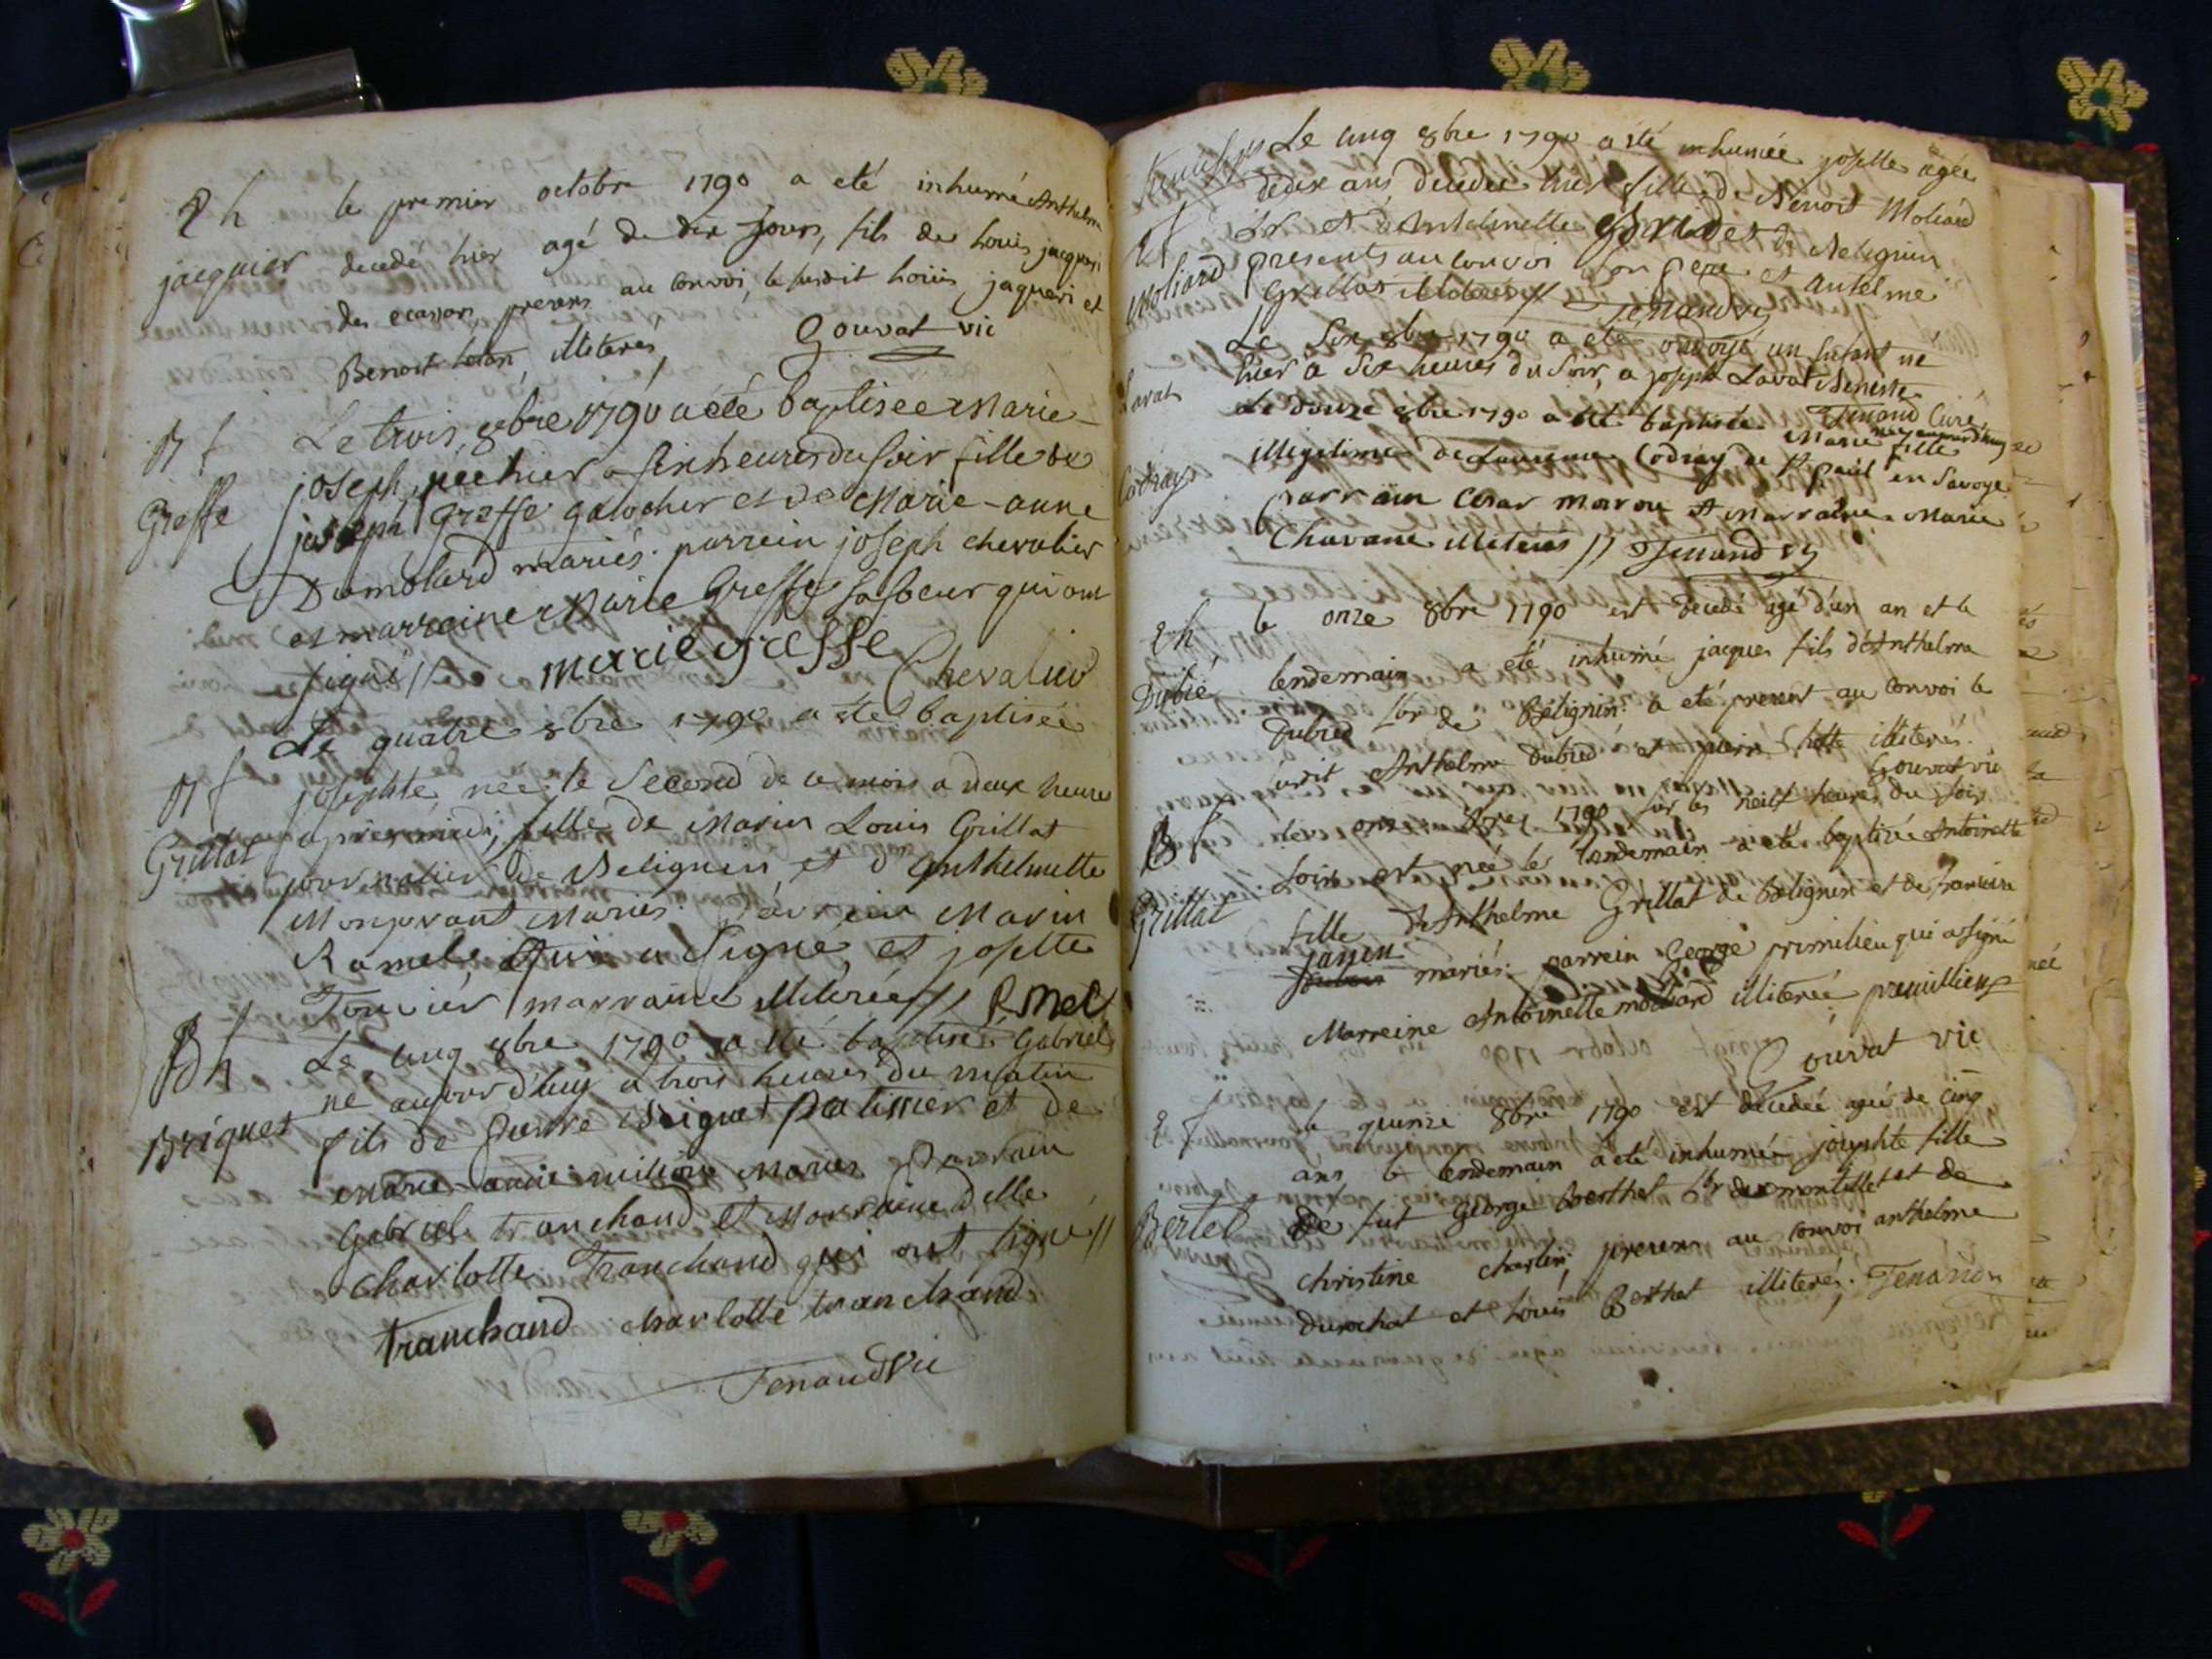 le premier octobre 1790 a eté inhumé Anthelme
jacquier decedé hier agé de dix Jours, fils de Louis jacqueri
des ecassors, presens au convoi, le susdit Louis jaqueri et
Benoit illiterés, Gouvat vic
Le trois 8bre 1790 a été baptisée Marie
Greffe joseph, née hier a six heures du soir fille de
joseph Greffe galocher et de Marie-anne
Dumolard mariés. parrein joseph chevalier
et marraine Marie Greffe sa soeur qui ont
signé // marie greffe Chevalier
Le quatre 8bre 1790 a été baptisée
josephte, née le second de ce mois a deux heures
Grillat après midi, fille de Marin Louis Grillat
journalier de Belignin et d'anthelmette
Monjovant Mariés. Parrein Marin
Ramel qui a Signé, et josette
marraine illiterée // Ramel
Le cinq 8bre 1790 a été baptisé Gabriel
né aujourd'huy a trois heures du matin
Briquet fils de pierre Briquet patissier et de
marie-anne Mariés Parrain
Gabriel tranchand et Marraine dlle
Charlotte Tranchand qui ont signé //
tranchand charlotte tranchand
Tenand Vic
Le cinq 8bre 1790 a été inhumée josette agée
de dix ans decedée hier fille de Benoit Moliard
et d'Antelmette de Belignin
Moliard presents au convoi son père et antelme
Grillat illiterés // Tenand vic
Le Six 8bre 1790 a été ondoyé un Enfant né
Lavat hier à Six heures du Soir, a joseph Lavat
Tenand Curé
Le douze 8bre 1790 a été baptisée Marie née aujourd'huy fille
Codray illegitime de Laurence Codray de St Paul en Savoye
Parrain Cesar maron et Marraine Marie
Chavane illiterés // Tenand vic
le onze 8bre 1790 est decedé agé d'un an et le
lendemain a eté inhumé jacques fils d'Anthelme
Dubié Dubied lor de Bélignin. a eté present au convoi le
susdit Anthelme Dubied et pierre illiterés.
Gouvat vic
le onze 8bre 1790 sur les neuf heures du soir
soir est née le lendemain a eté baptisée Antoinette
Grillat fille d'Anthelme Grillat de belignin et de francoise
janin
mariés. parrein George primilieu qui a signé
Marreine Antoinette moliard illiterée
Gouvat vic
le quinze 8bre 1790 est decedée agée de cinq
ans le lendemain a été inhumée josephte fille
Bertet de fut George berthet lor de montillet et de
christine charlin, presens au convoi anthelme
durochat et Louis Berthet illiterés. Tenand vic